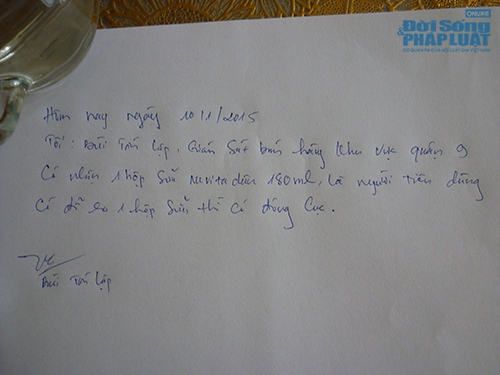 ONLINE
Đời Sống
& PHÁP LUẬT
Hôm nay ngày 10/1/2015
Tôi: Bùi Tấn Lập. Giám Sát bán hàng khu vực quận 9
Có nhận 1 hộp Sữa Nuvita dâu 180ml, là người tiêu dùng
Có đổ ra 1 hộp Sữa thì Có đóng Cục.
Bùi Tấn Lập